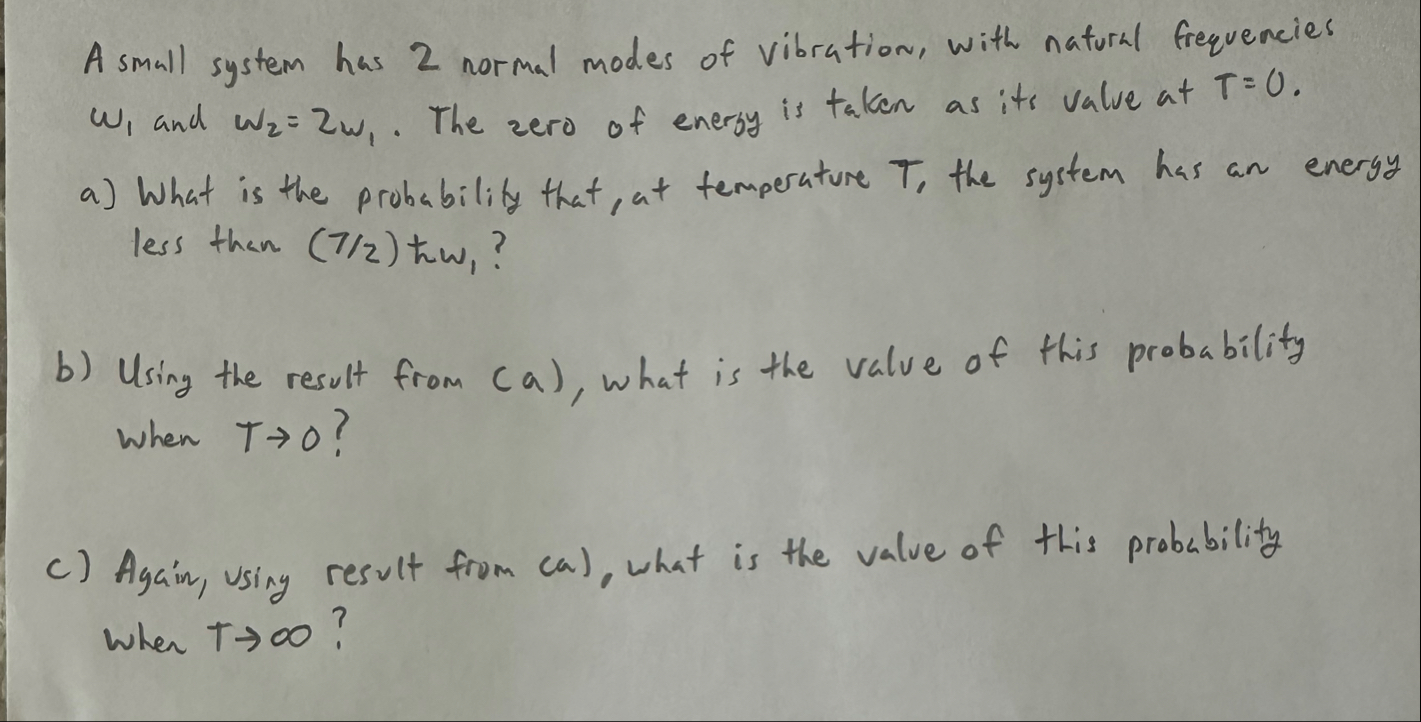 A small system has 2 normal modes of vibration, with natural frequencies
ω₁ and ω₂=2ω₁. The zero of energy is taken as its value at T=0.
a) What is the probability that, at temperature T, the system has an energy
less than (7/2)ħω₁?
b) Using the result from (a), what is the value of this probability
when T→0?
c) Again, using result from (a), what is the value of this probability
when T→∞?